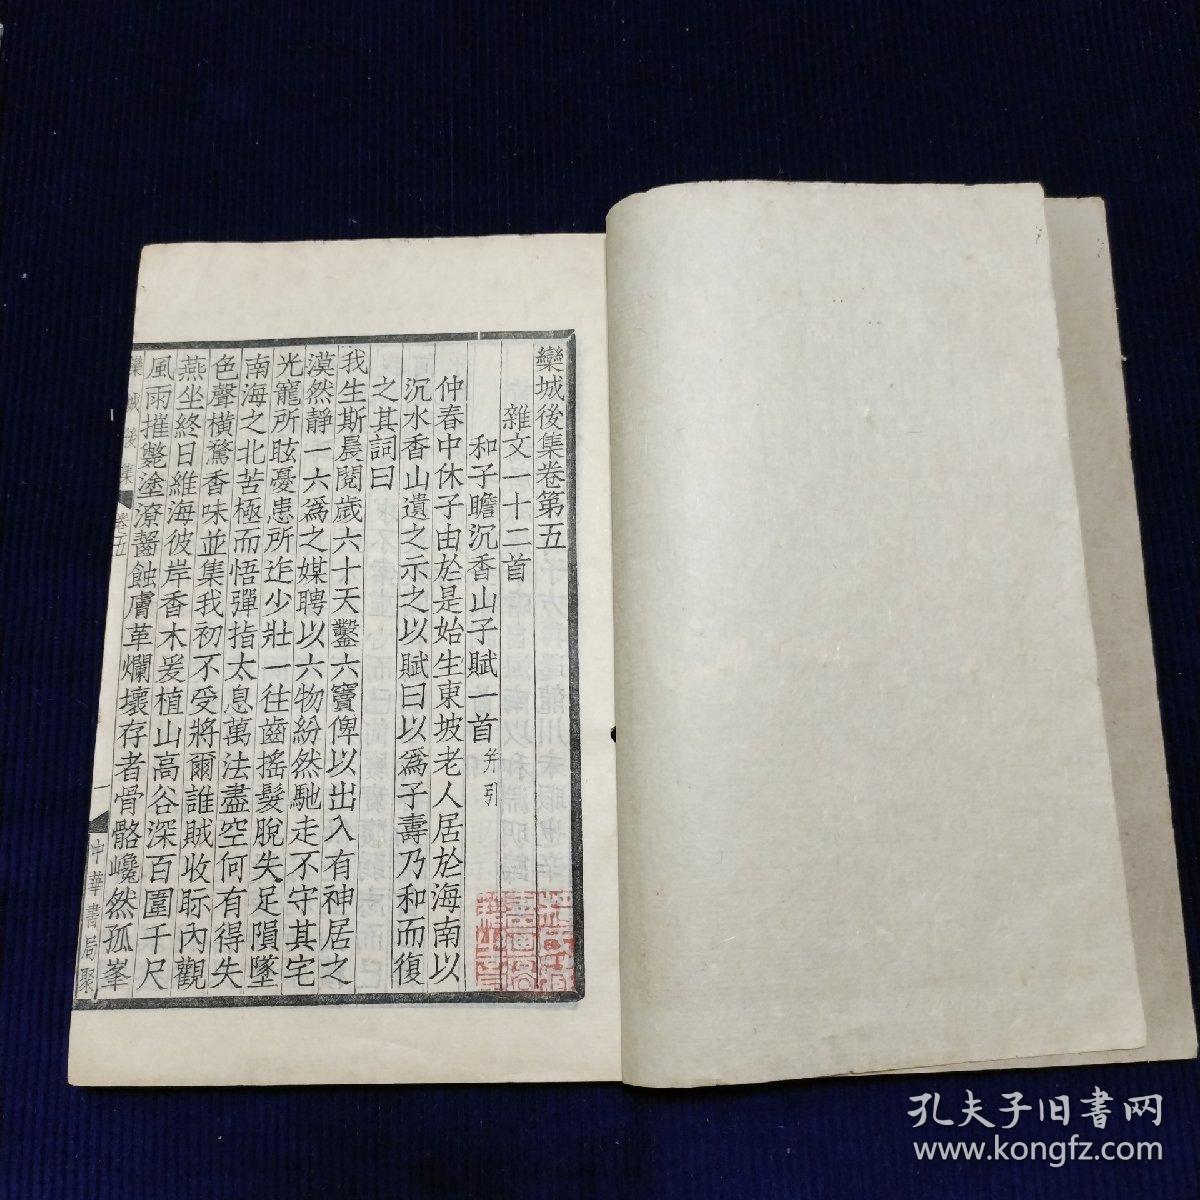 欒城後集卷第五
雜文一十二首
和子瞻沉香山子賦一首并引
仲春中休子由於是始生東坡老人居於海南以
沉水香山遺之示之以賦曰以爲子壽乃和而復
之其詞曰
我生斯晨閱歲六十天鑿六竇俾以出入有神居之
漠然靜一六爲之媒聘以六物紛然馳走不守其宅
光寵所眩憂患所迮少壯一往齒搖髮脫失足隕墜
南海之北苦極而悟彈指太息萬法盡空何有得失
色聲橫鶩香味並集我初不受將爾誰賊收眎內觀
燕坐終日維海彼岸香木爰植山高谷深百圍千尺
風雨摧斃塗潦齧蝕膚革爛壞存者骨骼巉然孤峯
欒城後集 卷五 一 中華書局聚
孔夫子旧書网
www.kongfz.com